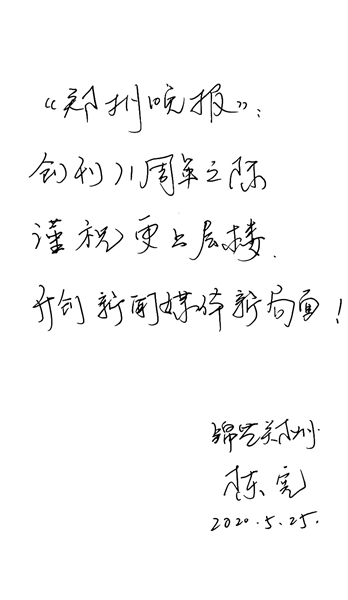 《郑州晚报》:
创刊71周年之际
谨祝更上层楼.
开创新闻媒体新局面!
锦艺郑州
陈
2020.5.25.